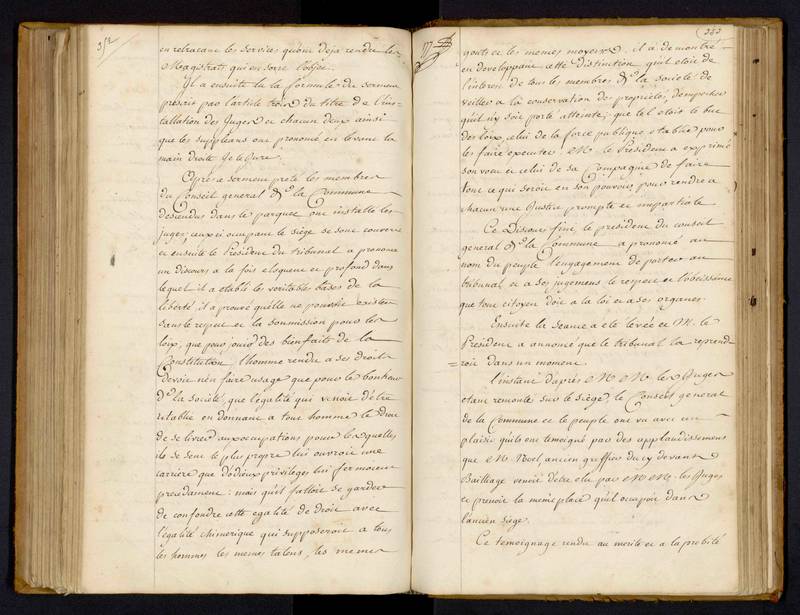 352
en retracant les services qu'ont deja rendu les
Magistrats qui en sont l'objet.
Il a ensuite lu la formule du serment
prescrit par l'article trois du titre de l'ins-
tallation des Juges et chacun deux ainsi
que les suppleans ont prononcé en levant la
main droite Je le Jure.
Après ce serment prêté les membres
du Conseil general de la Commune
descendus dans le parquet ont installé les
juges, ceux ci occupant le siège se sont couverts
et ensuite le President du tribunal a prononcé
un discours a la fois eloquent et profond dans
lequel il a etabli les veritables bases de la
liberté, il a prouvé qu'elle ne pouvoit exister
sans le respect et la soumission pour les
loix, que pour jouir des bienfaits de la
Constitution l'homme rendu a ses droits
devoit n'en faire usage que pour le bonheur
de la société, que l'égalité qui venoit d'être
retablie en donnant a tout homme le droit
de se livrer aux occupations pour lesquelles
il se sent le plus propre lui ouvroit une
carriere que d'odieux privileges lui fermoient
precedament : mais qu'il falloit se garder
de confondre cette egalité de droit avec
l'égalité chimerique qui supposeroit a tous
les hommes les memes talens, les memes
353
gouts et les memes moyens. il a demontré
en developpant cette distinction qu'il etoit de
l'interet de tous les membres de la société de
veiller a la conservation des propriétés, d'empecher
qu'il n'y soit porté atteinte; que tel etoit le but
des loix, celui de la force publique etablie pour
les faire executer. M. le President a exprimé
son voeu et celui de sa Compagnie de faire
tout ce qui seroit en son pouvoir pour rendre a
chacun une Justice prompte et impartiale
Ce Discours fini, le president du conseil
general de la Commune a prononcé au
nom du peuple l'engagement de porter au
tribunal et a ses jugemens le respect et l'obeissance
que tout citoyen doit a la loi et a ses organes.
Ensuite la seance a eté levée et M. le
President a annoncé que le tribunal la reprend
= roit dans un moment.
l'instant d'après M M. les Juges
etant remontés sur le siège, le Conseil general
de la Commune et le peuple ont vu avec un
plaisir qu'ils ont temoigné par des applaudissemens
que M. Noel, ancien greffier du cy devant
Bailliage venoit d'etre elu par M M. les Juges
et prenoit la meme place qu'il occupoit dans
l'ancien siege.
Ce temoignage rendu au merite et a la probité